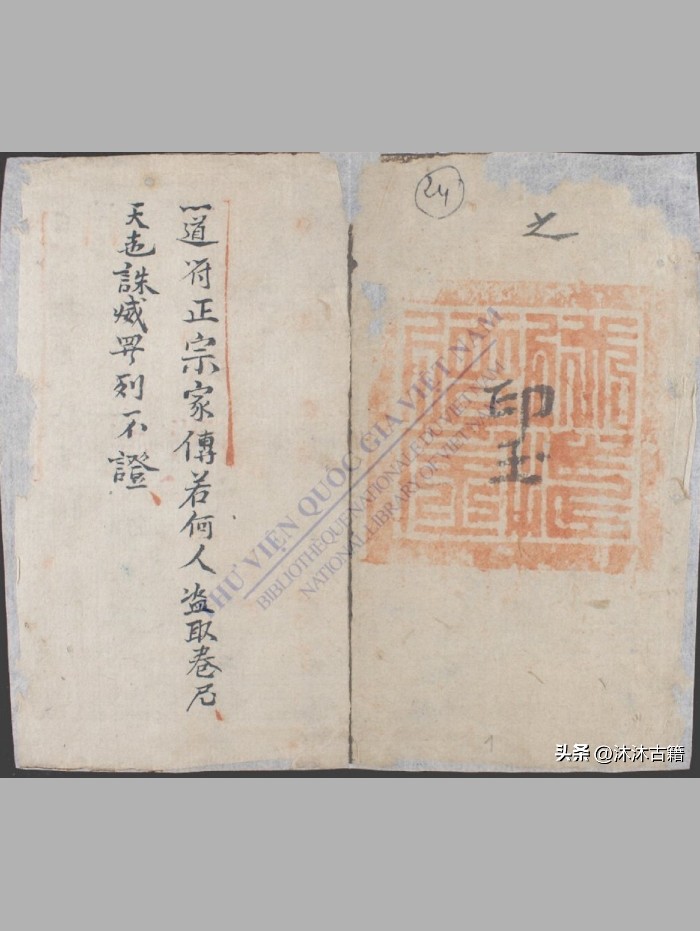 24
之
印
玉
道符正宗家傳若何人盗取卷尼
天 誅 列不證
THƯ VIỆN QUỐC GIA VIỆT NAM
BIBLIOTHÈQUE NATIONALE DU VIETNAM
NATIONAL LIBRARY OF VIETNAM
1
头条 @沐沐古籍